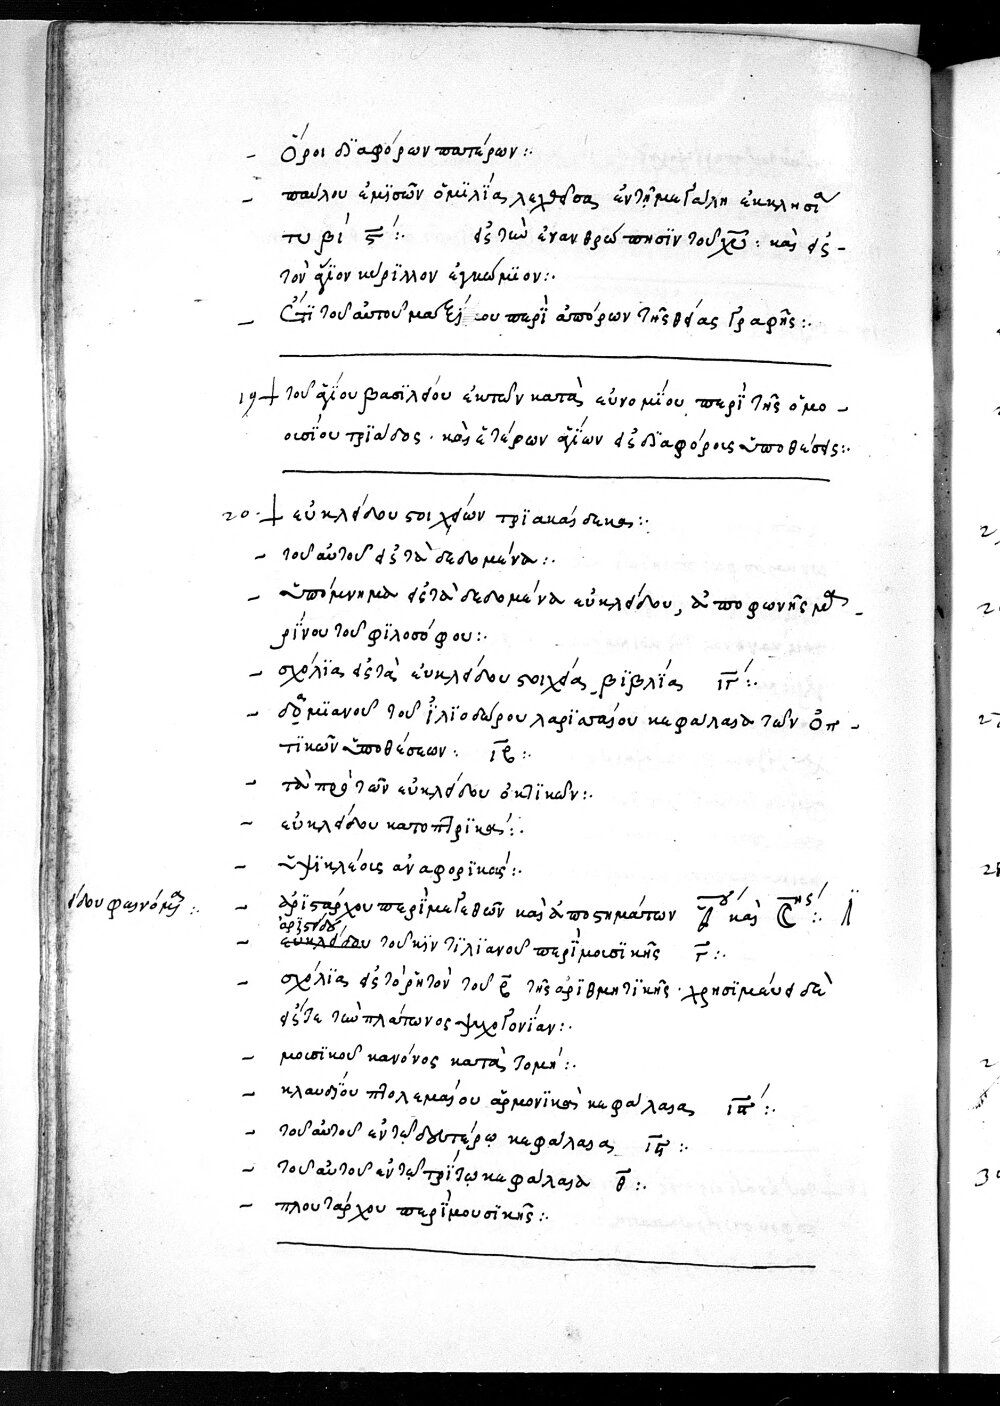 – Ὅροι διαφόρων πατέρων:·
– παύλου ἐμίσων ὁμιλίας λεχθεῖσας ἐν τῇ μεγάλη ἐκκλησία
τυβί ϛ΄:· εἰς τὼ ἐνανθρώπησϊν τοῦ χῡ: καὶ εἰς –
τὸν ἅγϊον κύρϊλλον ἐγκώμϊον:·
– ἔτι τοῦ αὐτοῦ μαξίμου περὶ ἀπόρων τῆς θείας γραφῆς:·
19 + τοῦ ἁγίου βασϊλείου ἐκ τῶν κατὰ εὐνομίου περὶ τῆς ὁμο –
ουσίου τρϊάδος · καὶ ἑτέρων ἁγίων εἰς δϊαφόροις ὑποθέσεις:·
20 · + εὐκλείδου στοιχείων τρϊακαίδεκα:·
– τοῦ αὐτοῦ εἰς τὰ δεδομένα:·
– ὑπόμνημα εἰς τὰ δεδομένα εὐκλείδου, ἀπὸ φωνῆς μα –
ρίνου τοῦ φϊλοσόφου:·
– σχόλϊα εἰς τὰ εὐκλείδου στοιχεία βϊβλία ιγ΄:·
– δαμϊανοῦ τοῦ ἡλϊοδώρου λαρϊσσαίου κεφάλαια τῶν ὀπ –
τϊκῶν ὑποθέσεων: ιδ:·
– τὰ πρὸ τῶν εὐκλείδου ὀπτϊκῶν:·
– εὐκλείδου κατοπτρϊκά:·
– ὑψϊκλέοις ἀναφορϊκός:·
εἰδου φαινόμενα:· – ἀρϊστάρχου περὶ μεγεθῶν καὶ ἀποστημάτων ἡλίου καὶ σελήνης:·
ἀριστείδου
– εὐκλείδου τοῦ κϊντϊλϊανοῦ περὶ μοισϊκῆς γ:·
– σχόλϊα εἰς τὸ ῥητὸν τοῦ τῆς ἀρϊθμητϊκῆς · χρησϊμεύει δὲ
εἴς τε τὼ πλάτωνος ψυχογονίαν:·
– μοισϊκοῦ κανόνος κατατομή:·
– κλαυδίου πτολεμαίου ἁρμονϊκὰ κεφάλαια ιϛ΄:·
– τοῦ αὐτοῦ ἐν τῷ δευτέρῳ κεφάλαια ιϛ:·
– τοῦ αὐτοῦ ἐν τῷ τρίτῳ κεφάλαια θ:·
– πλουτάρχου περὶ μουσϊκῆς:·